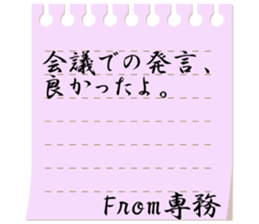 会議での発言、
良かったよ。
From専務